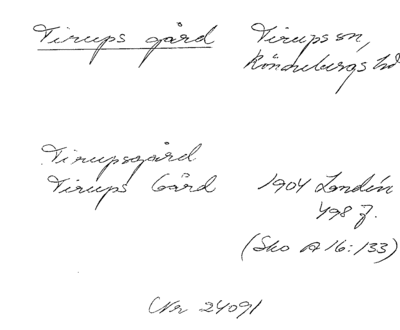 Tirups gård Tirups sn,
Rönnebergs hd
Tirupsgård
Tirups Gård 1904 Londén
498 J.
(Sko A 16:133)
Nr 24091